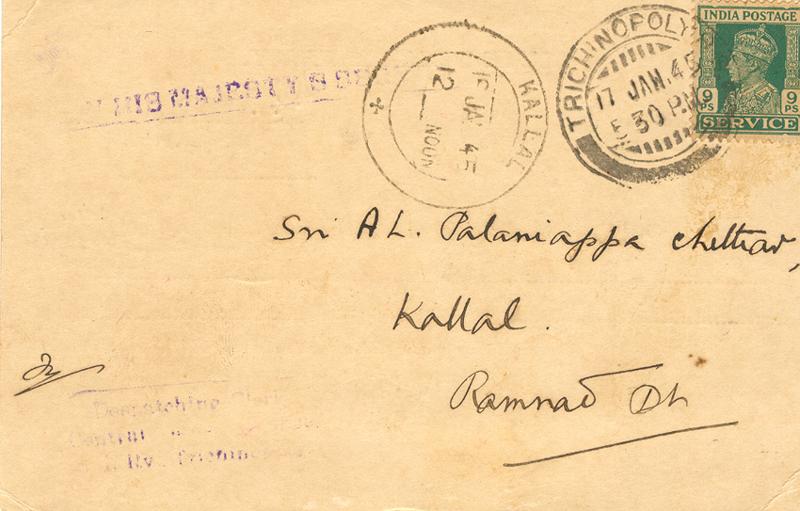 INDIA POSTAGE
9 PS 9 PS
SERVICE
TRICHINOPOLY
17 JAN.45
5 30 PM
KALLAL
JA 45
12 NOON
HIS MAJESTY'S
Sri A L. Palaniappa Chettiar,
Kallal.
Ramnad Dt
Despatching Clerk
Central
Ry.